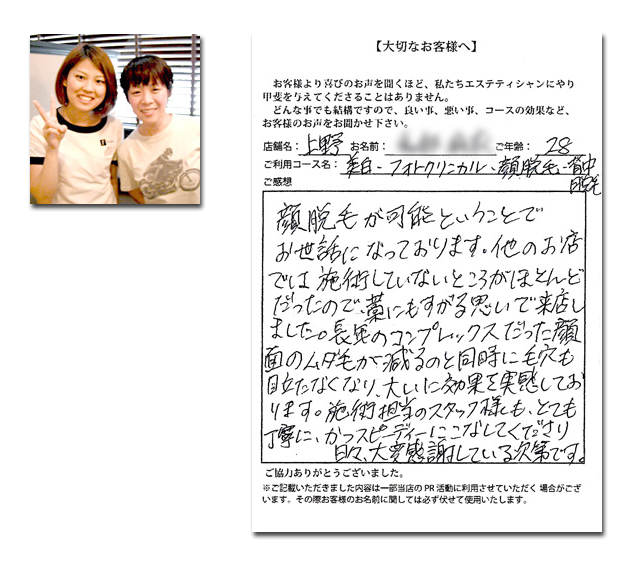 【大切なお客様へ】
お客様より喜びのお声を聞くほど、私たちエステティシャンにやり
甲斐を与えてくださることはありません。
どんな事でも結構ですので、良い事、悪い事、コースの効果など、
お客様のお声をお聞かせ下さい。
店舗名：上野 お名前： ご年齢：28
ご利用コース名：美白、フォトクリニカル、顔脱毛、背中
脱毛
ご感想
顔脱毛が可能ということで
お世話になっております。他のお店
では施術していないところがほとんど
だったので、藁にもすがる思いで来店し
ました。長年のコンプレックスだった顔
面のムダ毛が減るのと同時に毛穴も
目立たなくなり、大いに効果を実感してお
ります。施術担当のスタッフ様も、とても
丁寧に、かつスピーディーにこなしてくださり
日々、大変感謝している次第です。
ご協力ありがとうございました。
※ご記載いただきました内容は一部当店の PR 活動に利用させていただく 場合がござ
います。その際お客様のお名前に関しては必ず伏せて使用いたします。